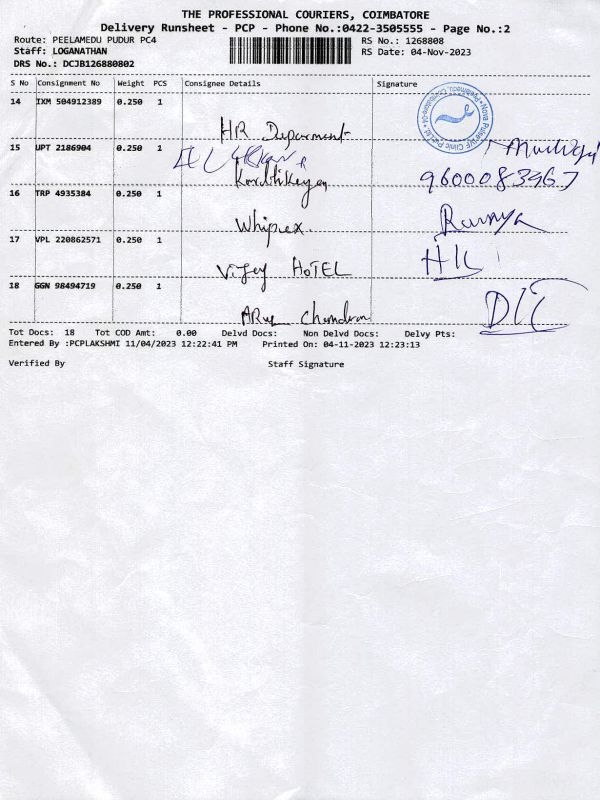 THE PROFESSIONAL COURIERS, COIMBATORE
Delivery Runsheet - PCP - Phone No.:0422-3505555 - Page No.:2
Route: PEELAMEDU PUDUR PC4 RS No.: 1268808
Staff: LOGANATHAN RS Date: 04-Nov-2023
DRS No.: DCJB126880802
S No Consignment No Weight PCS Consignee Details Signature
14 IXM 504912389 0.250 1
HR Deparment
15 UPT 2186904 0.250 1
Karthikeyan 9600083967
16 TRP 4935384 0.250 1
Whipex. Ramya
17 VPL 220862571 0.250 1
Vijey HOTEL
18 GGN 98494719 0.250 1
Arun Chandran
Tot Docs: 18 Tot COD Amt: 0.00 Delvd Docs: Non Delvd Docs: Delvy Pts:
Entered By :PCPLAKSHMI 11/04/2023 12:22:41 PM Printed On: 04-11-2023 12:23:13
Verified By Staff Signature